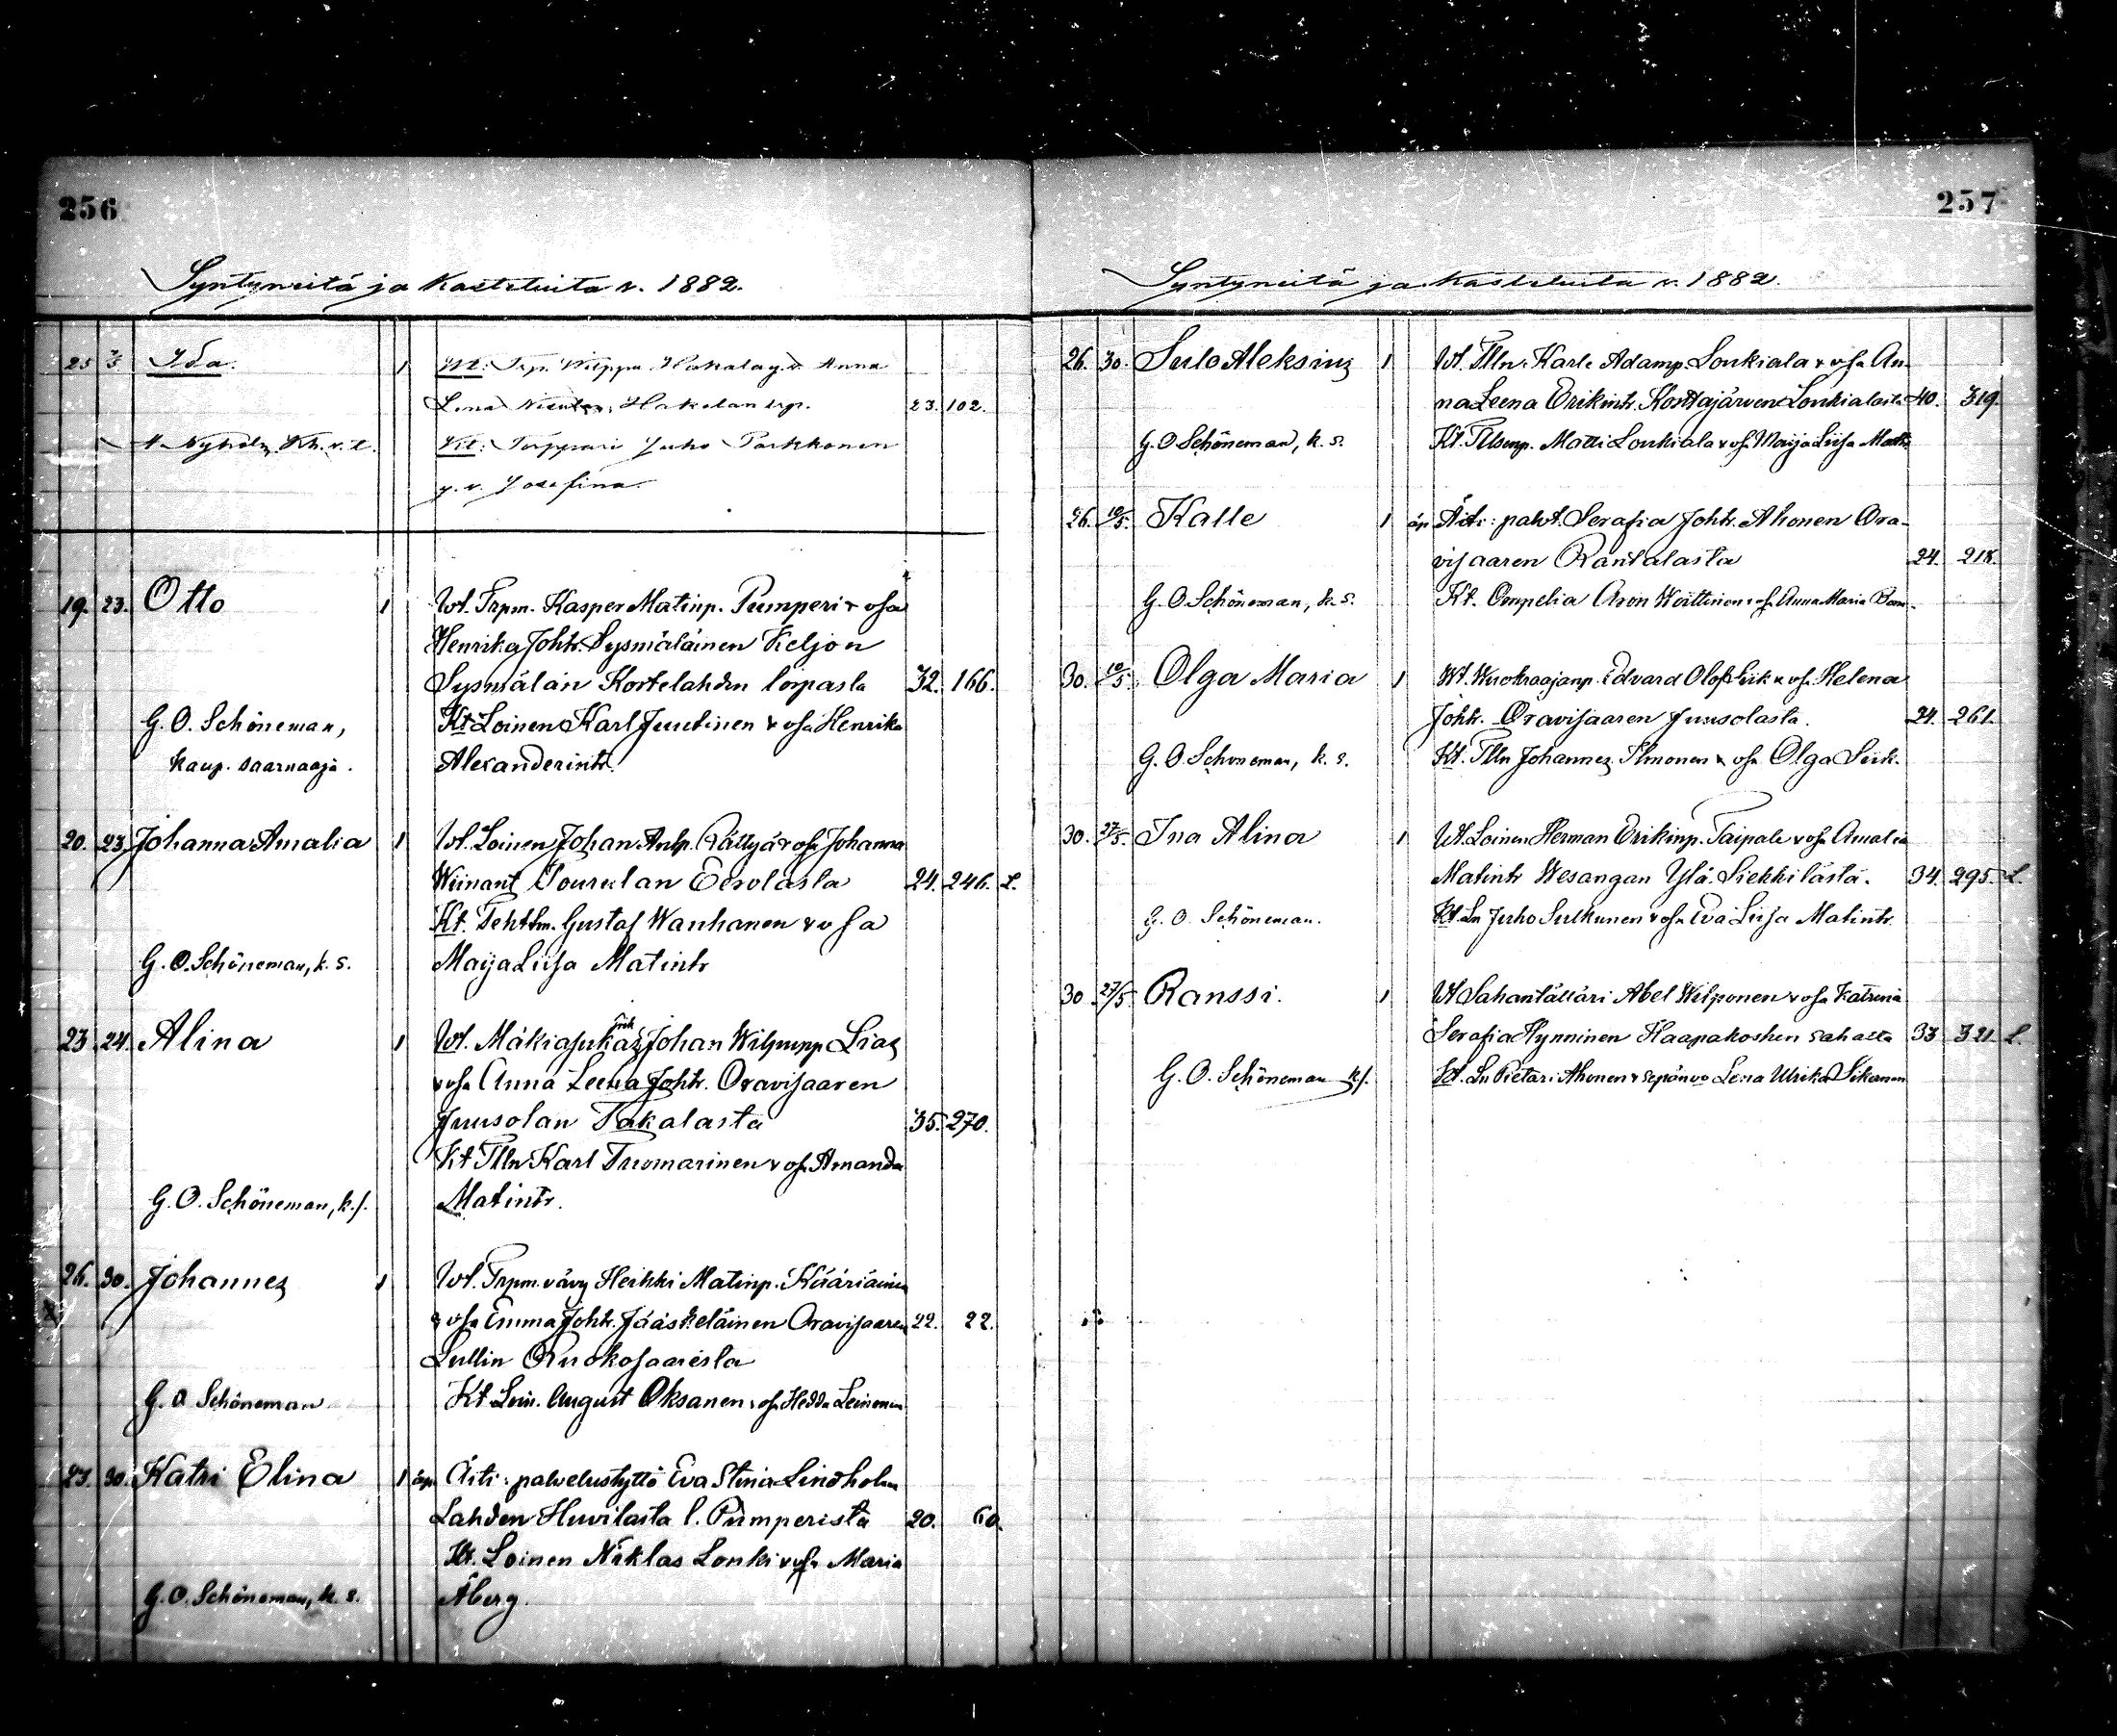 256
Syntyneitä ja Kastetuita v. 1882.
25 7/5 Ida. 1 Wt: Trp. Wilppu Hakala y. v. Anna
Lena Hakalan trp. 23. 102.
Nyholm, Kh. v. t. Kt: Torppari Juho Parkkonen
y. v. Josefina.
19. 23. Otto 1 Wt. Trpm. Kasper Matinp. Pumperi & vsa
Henrika Johtr. Sysmäläinen Keljon
Sysmälän Kortelahden torpasta 32. 166.
G. O. Schöneman, Kt. Loinen Karl Juutinen & vsa Henrika
kaup. saarnaaja. Alexanderintr.
20. 23. Johanna Amalia 1 Wt. Loinen Johan Antp. Rättyä & vsa Johanna
Wiinant Tourulan Eerolasta 24. 246. L.
Kt. Tehtm. Gustaf Wanhanen & vsa
G. O. Schöneman, k. s. Maija Liisa Matintr
23. 24. Alina 1 Wt. Mäkiasukas Johan Wilpunp Lias
& vsa Anna Leena Johtr. Oravisaaren
Juusolan Takalasta 35. 270.
Kt Tlln Karl Tuomarinen & vsa Amanda
G. O. Schöneman, k. s. Matintr.
26. 30. Johannes 1 Wt. Trpm. vävy Heikki Matinp. Kääriäinen
& vsa Emma Johtr. Jääskeläinen Oravisaaren 22. 22.
Lullin Ruokosaaresta
G. O Schöneman Kt. Loin. August Oksanen & vsa Hedda Leinonen
27. 30. Katri Elina 1 äp Äiti: palvelustyttö Eva Stina Lindholm
Lahden Huvilasta l. Pumperista 20. 60.
Kt. Loinen Niklas Lonki & vsa Maria
G. O. Schöneman, k. s. Åberg.
257
Syntyneitä ja Kastetuita v. 1882.
26. 30. Sulo Aleksius 1 Wt. Tlln. Karle Adamp. Loukiala & vsa An-
na Leena Erikintr. Kortajärven Loukialasta 40. 319.
G. O Schöneman, k. s. Kt. Tllsmp. Matti Loukiala & vsa Maija Liisa Matt.
26. 10/5. Kalle 1 äp Äiti: palvt. Serafia Johtr. Ahonen Ora-
visaaren Rantalasta 24. 218.
G. O Schöneman, k. s. Kt. Ompelia Aron Woittinen & vsa Anna Maria
30. 10/5 Olga Maria 1 Wt. Wuokraajanp. Edvard Olof Siik & vsa Helena
Johtr. Oravisaaren Juusolasta. 24. 261.
G. O Schöneman, k. s. Kt. Tlln Johannes Ilmonen & vsa Olga Siik.
30. 27/5. Ina Alina 1 Wt. Loinen Herman Erikinp. Taipale & vsa Amalia
Matintr Wesangan Ylä-Siekkilästä. 34. 295. L.
G. O. Schöneman. Kt. Ln Juho Sulkunen & vsa Eva Liisa Matintr.
30. 27/5 Ranssi. 1 Wt Sahantälläri Abel Wilponen & vsa Katrina
Serafia Hynninen Haapakosken sahasta 33 321. L.
G. O. Schöneman k/s. Kt. Ln Pietari Ahonen & sepänvo Lena Ulrika Sikanen